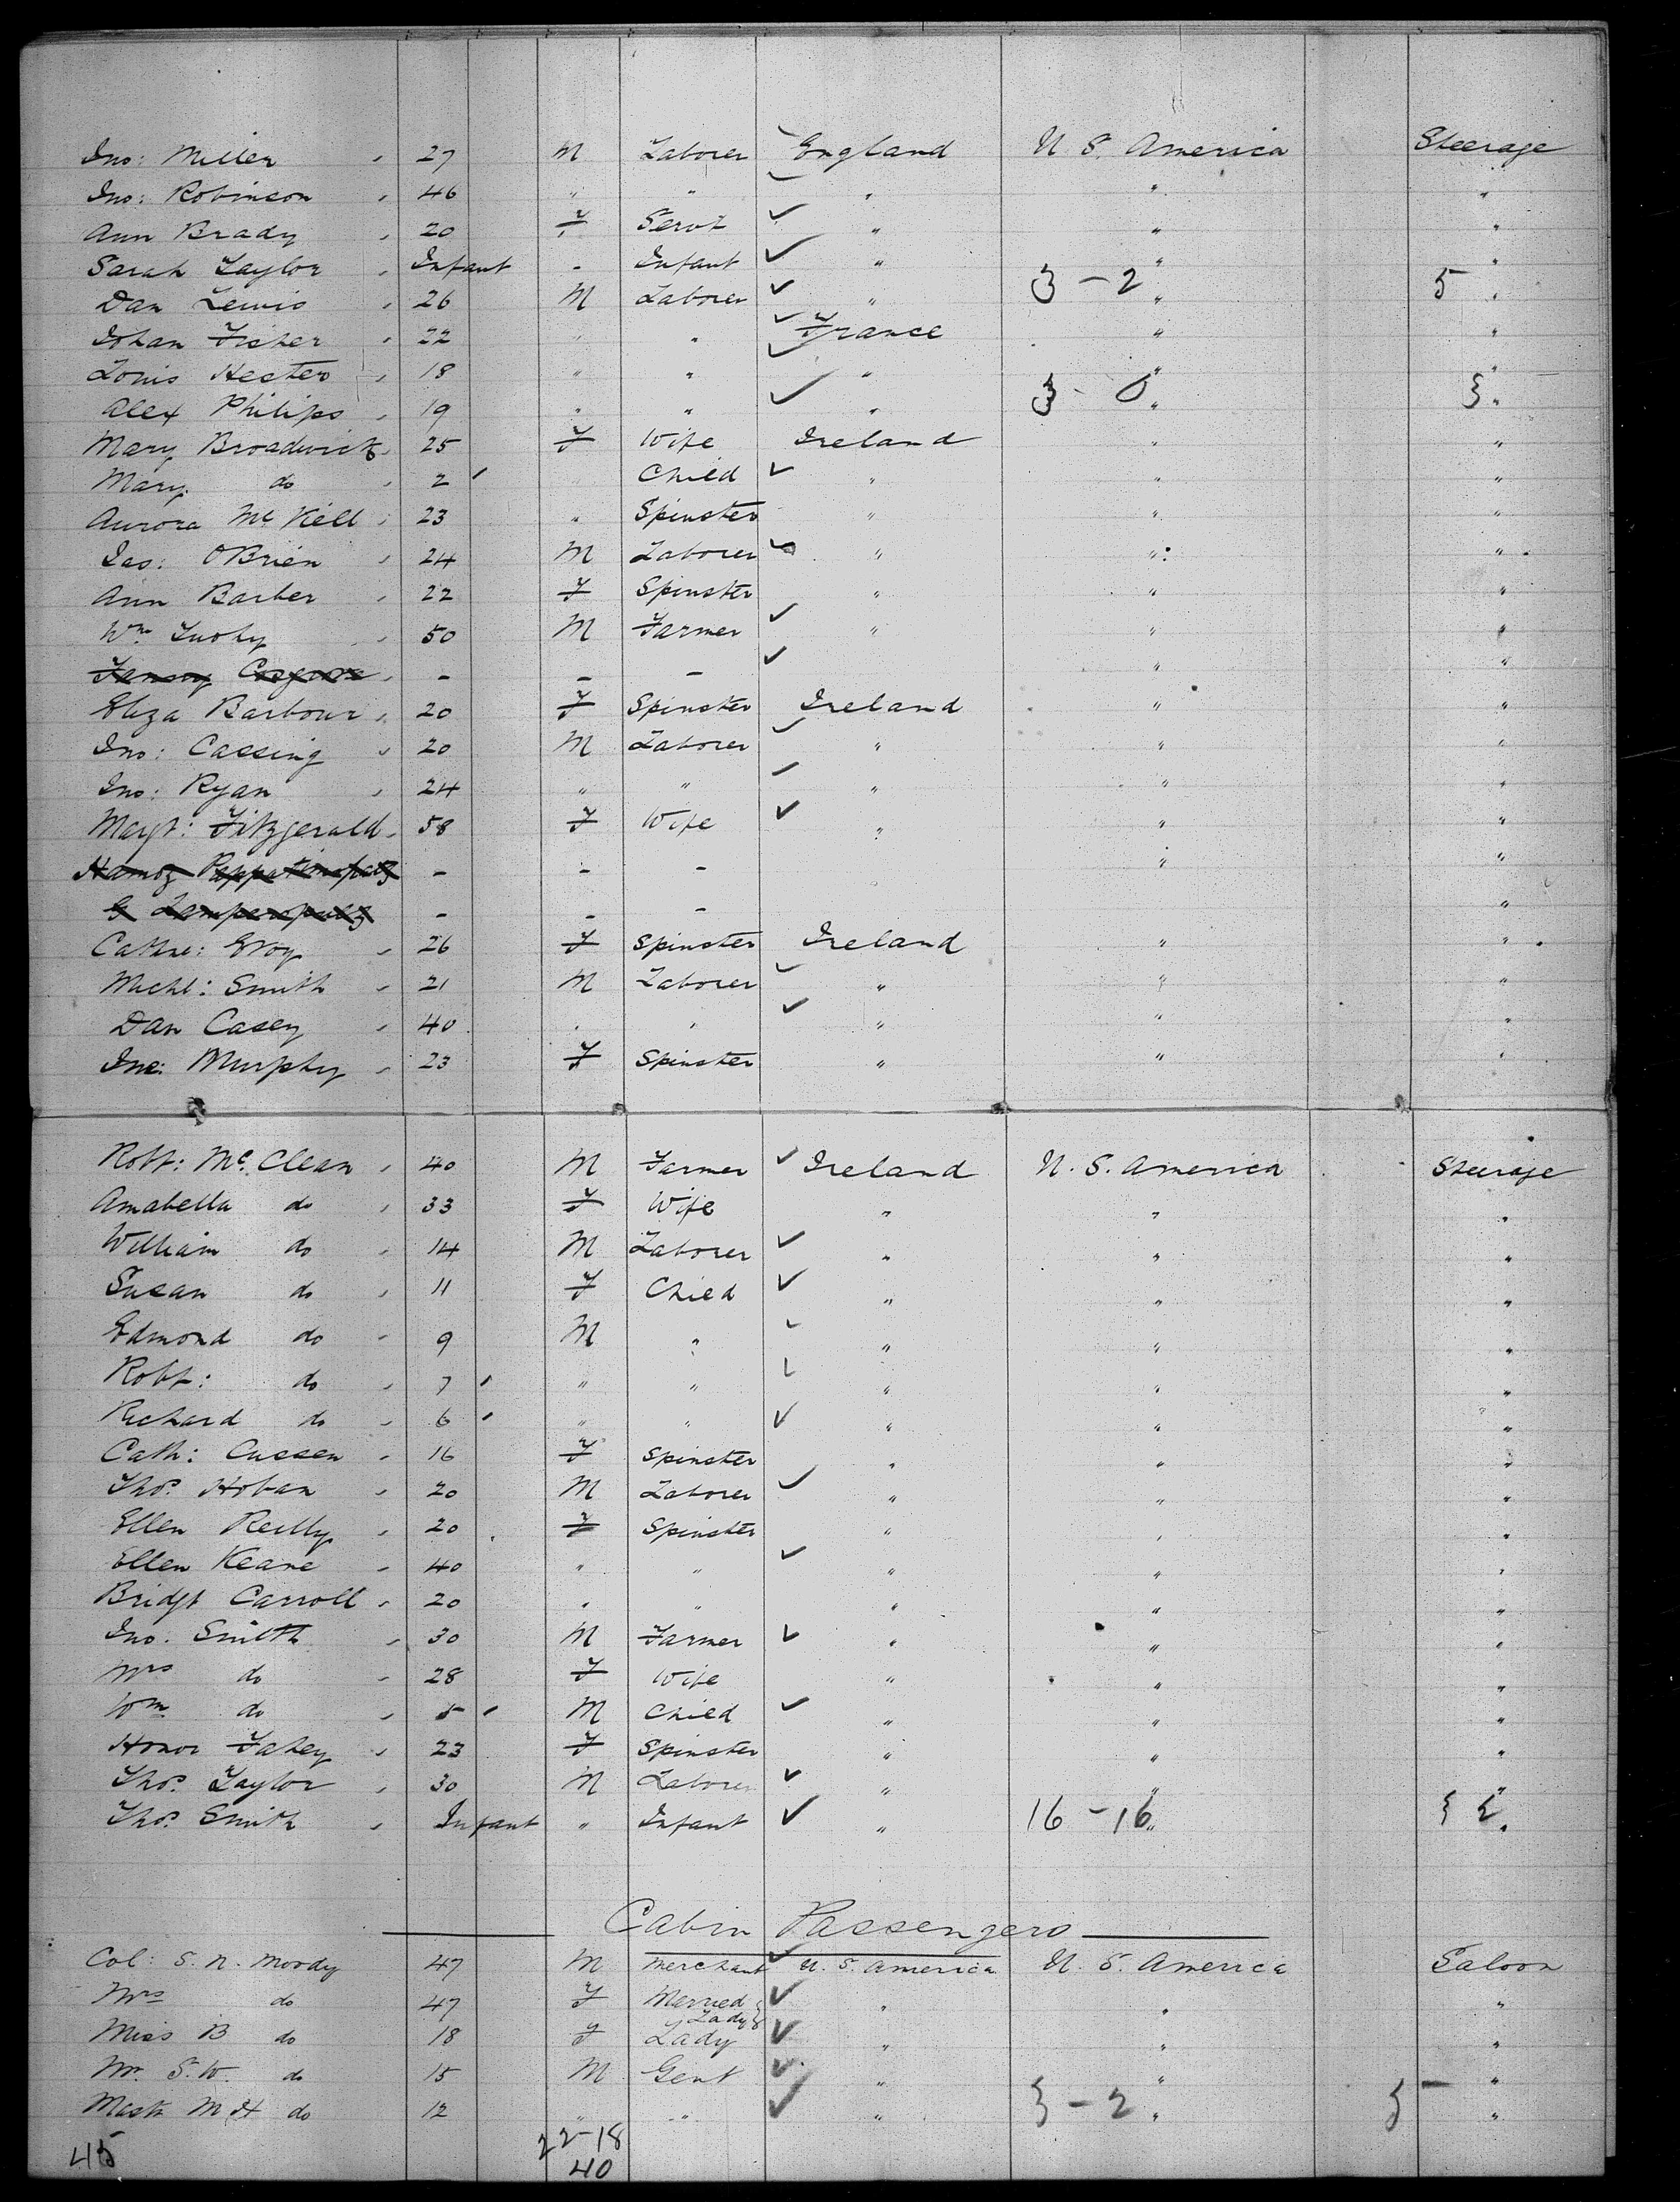 Jno: Miller 27 M Laborer England U. S. America Steerage
Jno: Robinson 46 " " " " "
Ann Brady 20 F Servt " " "
Sarah Taylor Infant - Infant " " "
Dan Lewis 26 M Laborer " 3 - 2 " 5 "
Johan Fisher 22 " " France " "
Louis Hecter 18 " " " " "
Alex Philips 19 " " " 3 - 0 " 3 "
Mary Broadwick 25 F Wife Ireland " "
Mary do 2 Child " " "
Aurora Mc Kell 23 " Spinster " " "
Jas: O'Brien 24 M Laborer " " "
Ann Barber 22 F Spinster " " "
Wm Tuohy 50 M Farmer " " "
- - - " "
Eliza Barbour 20 F Spinster Ireland " "
Jno: Cassing 20 M Laborer " " "
Jno: Ryan 24 " " " " "
Margt: Fitzgerald 58 F Wife " " "
- - - " "
- - - "
Cathne: Evoy 26 F Spinster Ireland " "
Michl: Smith 21 M Laborer " " "
Dan Casey 40 " " " " "
Jne: Murphy 23 F Spinster " " "
Robt: Mc. Clean 40 M Farmer Ireland U. S. America Steerage
Amabella do 33 F Wife " " "
William do 14 M Laborer " " "
Susan do 11 F Child " " "
Edmond do 9 M " " " "
Robt: do 7 " " " " "
Richard do 6 " " " " "
Cath: Cussen 16 F Spinster " " "
Thos. Hoban 20 M Laborer " " "
Ellen Reilly 20 F Spinster " " "
Ellen Keane 40 " " " " "
Bridgt Carroll 20 " " " " "
Jno. Smith 30 M Farmer " " "
Mrs do 28 F Wife " " "
Wm do 5 M Child " " "
Honor Fahey 23 F Spinster " " "
Thos. Taylor 30 M Laborer " " "
Thos. Smith Infant " Infant " 16 - 16 "
Cabin Passengers
Col: S. N. Moody 47 M Merchant U. S. America U. S. America Saloon
Mrs do 47 F Married Lady " " "
Miss B do 18 F Lady " " "
Mr. S. W. do 15 M Gent " " "
Mastr M H do 12 " " " 3 - 2 " "
45 22-18
40